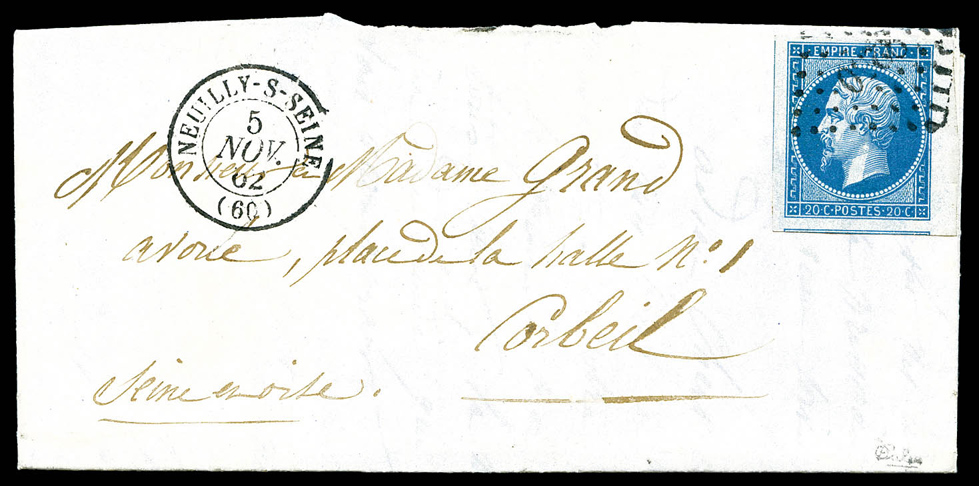 NEUILLY-S-SEINE
5
NOV.
62
(60)
EMPIRE FRANC
20·C·POSTES·20·C·
Monsieur & Madame Grand
avoué, place de la halle N° 1
Corbeil
Seine et oise.